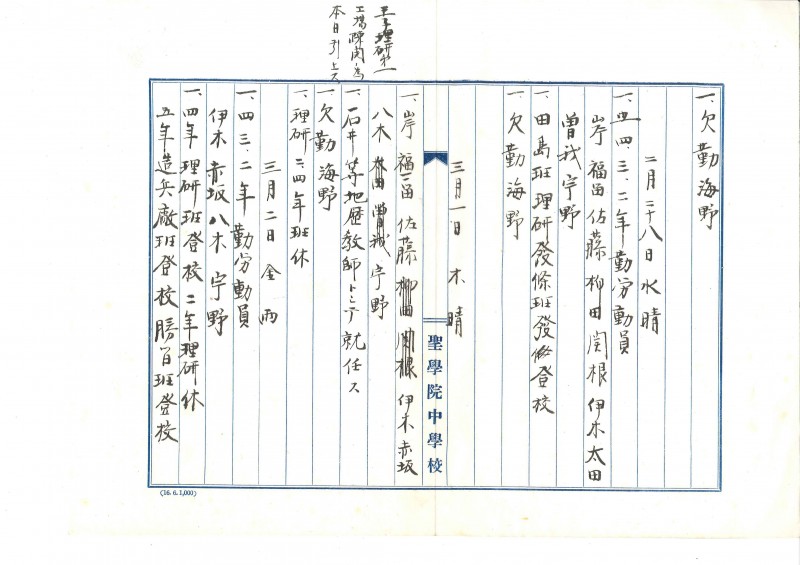 一、欠勤海野
二月二十八日水晴
一、四、三、二年勤労動員
岸福留佐藤柳田関根伊木太田
曽我宇野
一、田島班理研發條班發條登校
一、欠勤海野
三月一日木晴
聖學院中學校
一、岸福留佐藤柳田関根伊木赤坂
八木太田曽我宇野
一、石井等地歴教師トシテ就任ス
一、欠勤海野
一、理研三、四年班休
三月二日金雨
一、四、三、二年勤労動員
伊木赤坂八木宇野
一、四年理研班登校二年理研休
五年造兵廠班登校勝間班登校
王子理研第一
工場疎開ノ為
本日引上ス
(16. 6. 1,000)